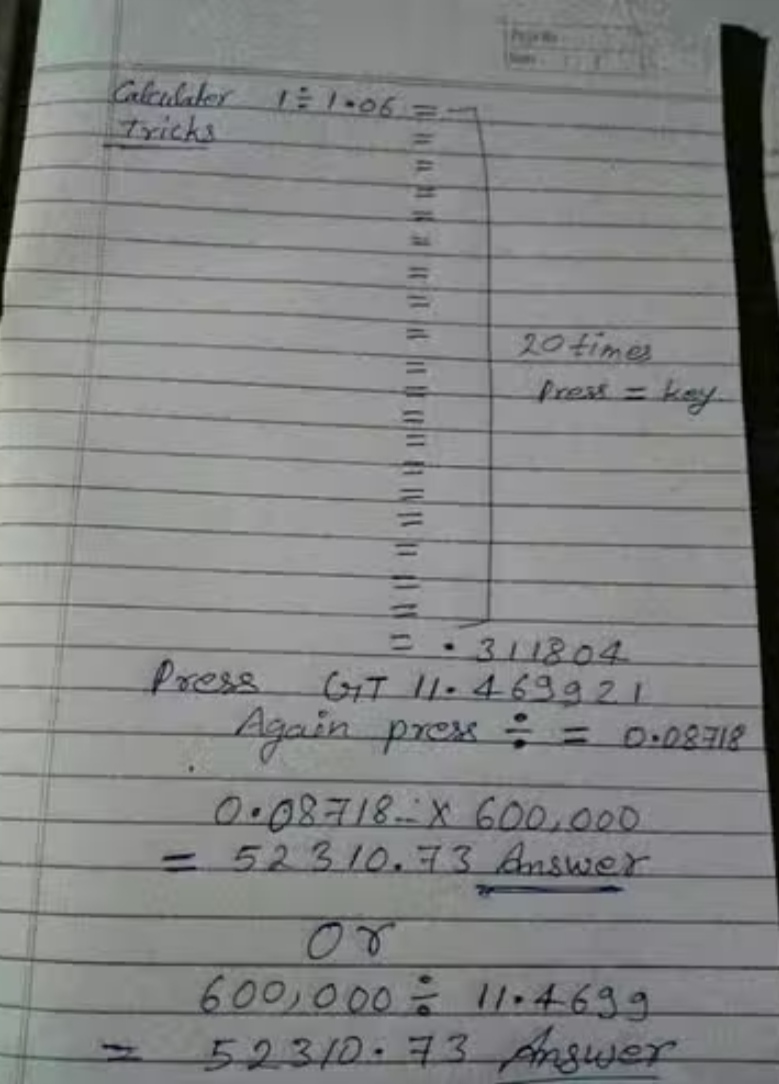 Calculator 1 ÷ 1.06 =
Tricks
=
=
=
=
=
=
=
=
20 times
=
Press = key
=
=
=
=
=
=
=
=
=
= .311804
Press GT 11.469921
Again press ÷ = 0.08718
0.08718.. × 600,000
= 52310.73 Answer
Or
600,000 ÷ 11.4699
= 52310.73 Answer